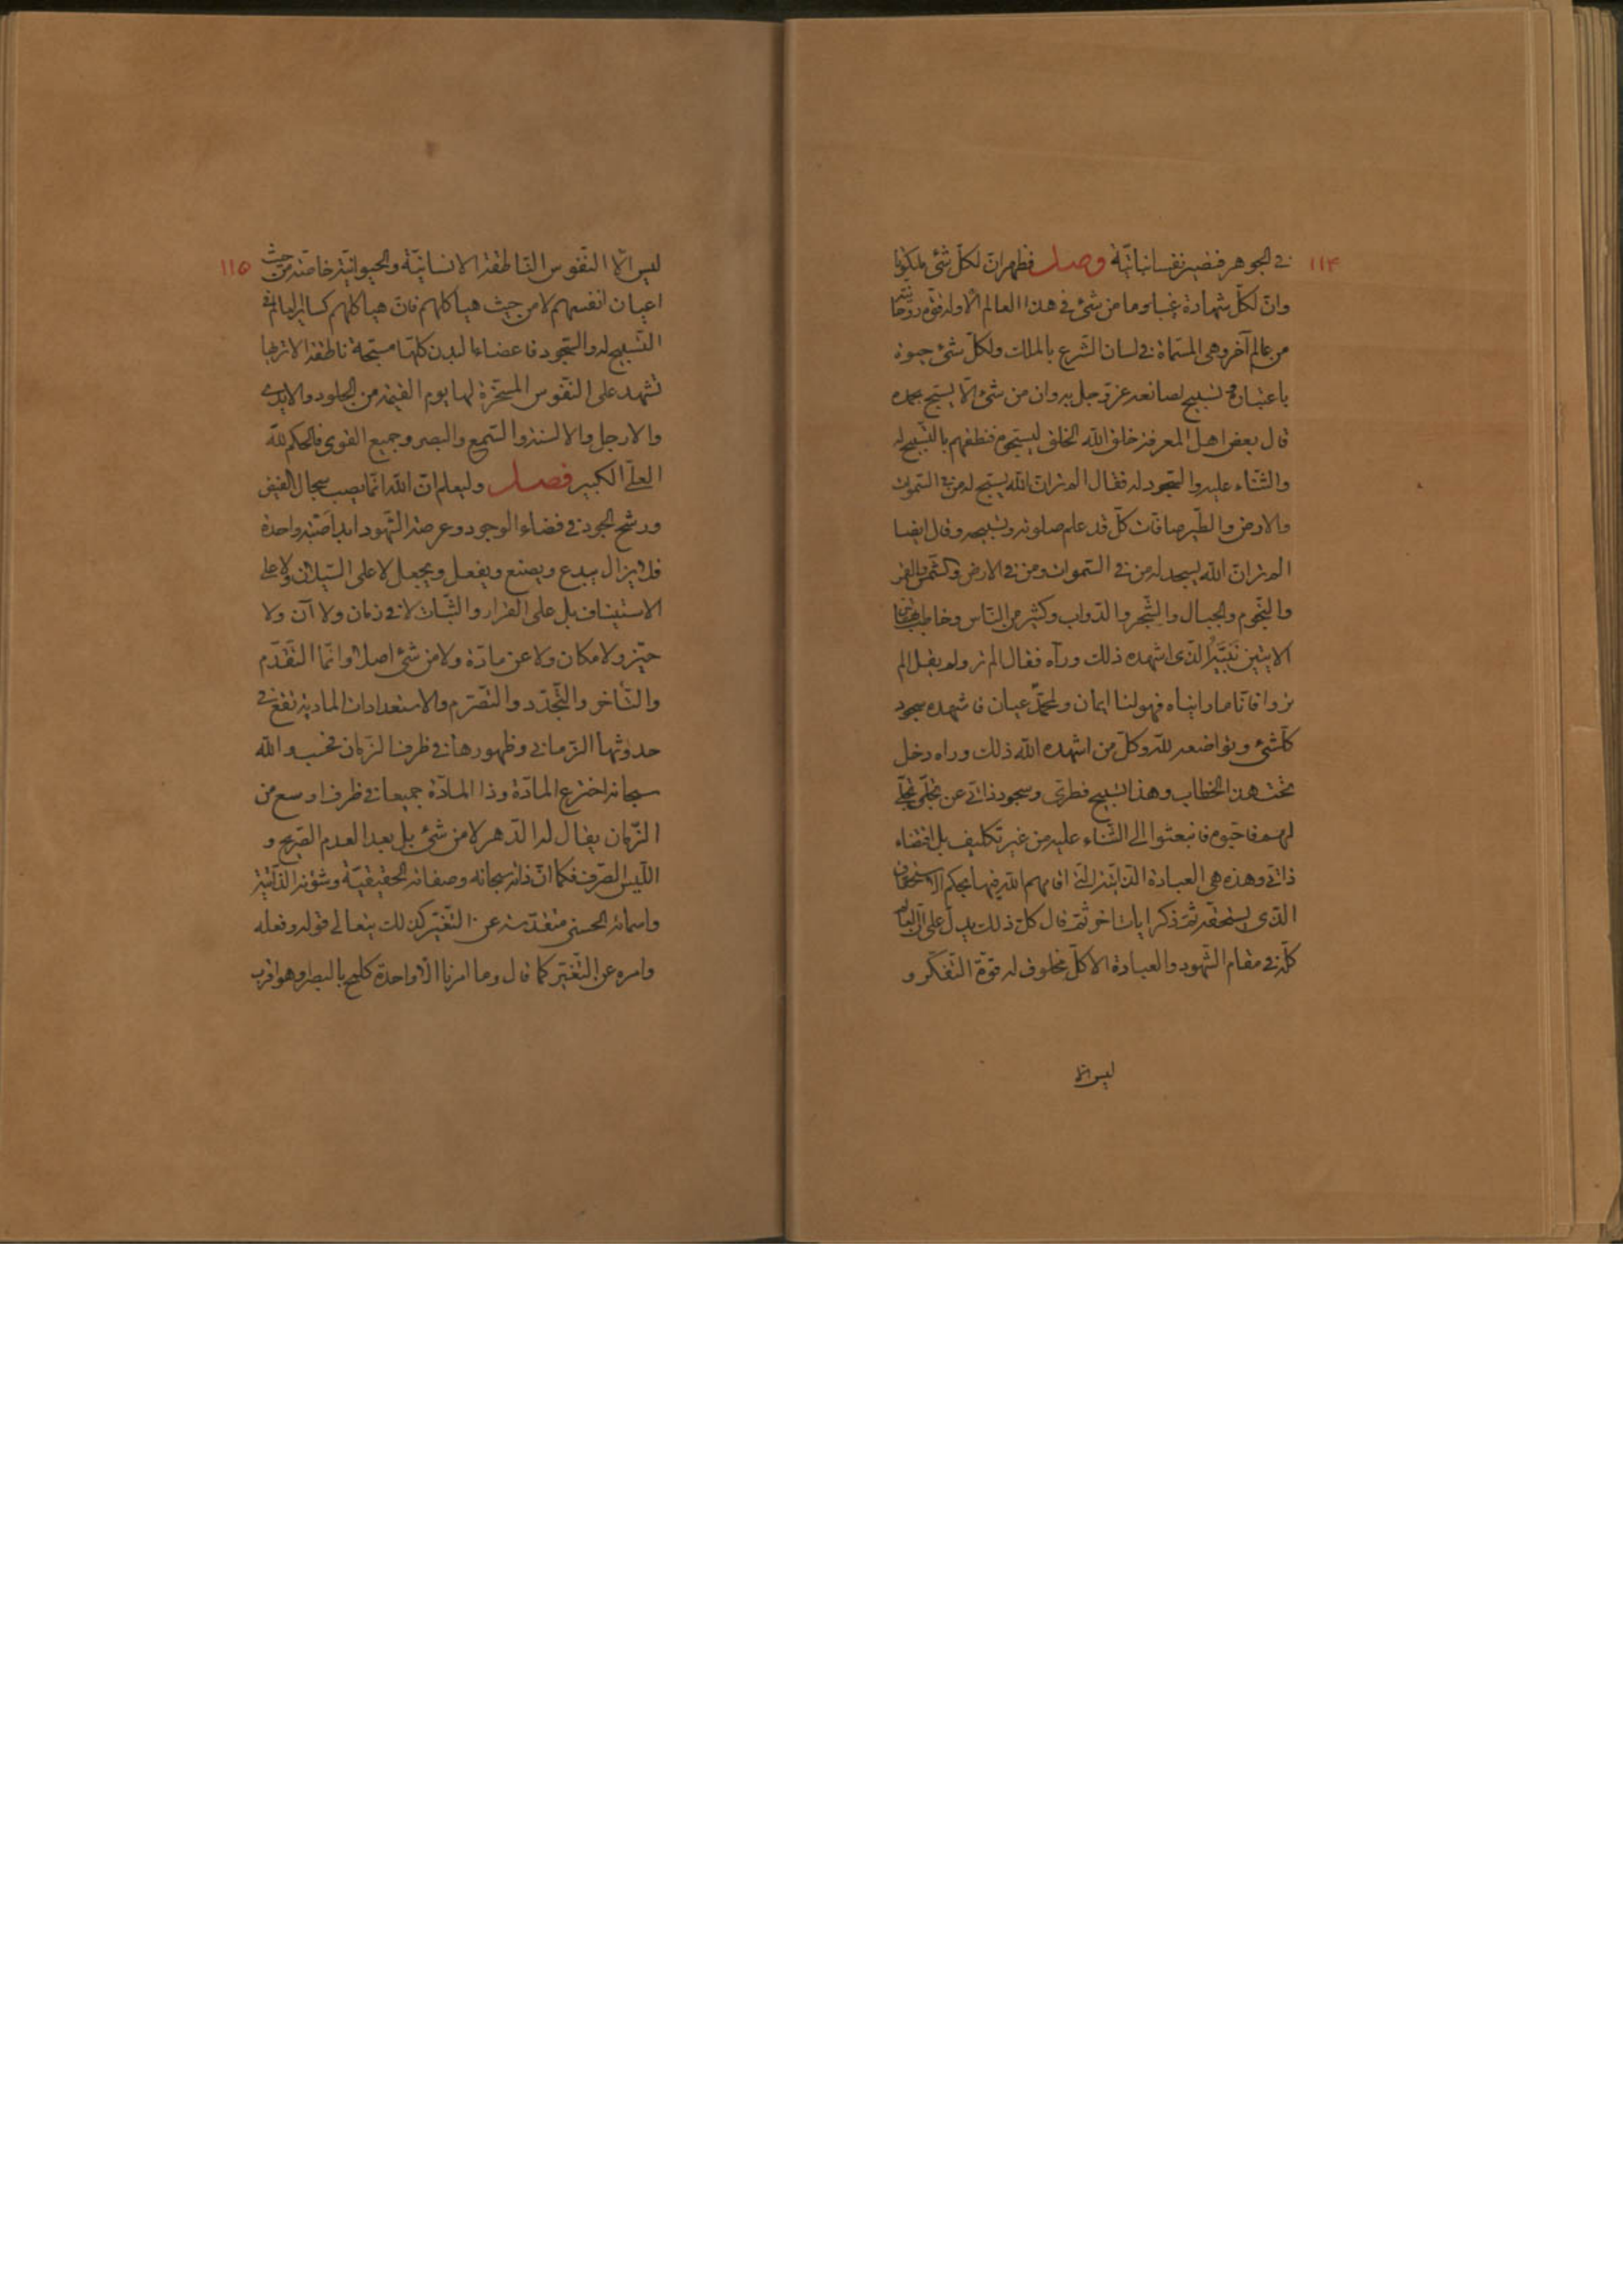 ١١٤
في الجوهر فتصير نفسا نباتيّة وصل فظهر انّ لكلّ شئ ملكوتا
وانّ لكلّ شهادة غيبا وما من شئ في هذا العالم الّا وله قوّة روحانيّة
من عالم آخر وهي المسمّاة في لسان الشّرع بالملك ولكلّ شئ حيوة
باعتباره تسبيح لصانعه عزّ وجلّ به وان من شئ الّا يسبّح بحمده
قال بعض اهل المعرفة خلق الله الخلق ليسبّحوه فنطقهم بالتّسبيح له
والثّناء عليه والسّجود له فقال الم تر انّ الله يسبّح له من في السّموات
والارض والطّير صافّات كلّ قد علم صلوته وتسبيحه وقال ايضا
الم تر انّ الله يسجد له من في السّموات ومن في الارض والشّمس والقمر
والنّجوم والجبال والشّجر والدّواب وكثير من النّاس وخاطب بهاتين
الايتين نَبيَّهُ الّذى اشهده ذلك ورآه فقال الم تر ولم يقل الم
تروا فانّا ما رايناه فهو لنا ايمان ولمحمّد عيان فاشهده سجود
كلّ شئ وتواضعه للّه وكلّ من اشهده الله ذلك وراه دخل
تحت هذا الخطاب وهذا تسبيح فطرىّ وسجود ذاتي عن تجلّى تجلّي
لهم فاحبّوه فانبعثوا الى الثّناء عليه من غير تكليف بل اقتضاء
ذاتي وهذه هي العبادة الذّاتيّة الّتي اقامهم الله فيها بحكم الاستحقاق
الّذى يستحقّه ثمّ ذكر ايات اخر ثمّ قال كلّ ذلك يدلّ على انّ العالم
كلّه في مقام الشّهود والعبادة الا كلّ مخلوق له قوّة التّفكّر و
ليس الّا
١١٥
ليس الّا النّفوس النّاطقة الانسانيّة والحيوانيّة خاصّة من حيث
اعيان انفسهم لا من حيث هياكلهم فانّ هياكلهم كساير العالم في
التّسبيح له والسّجود فاعضاء البدن كلّها مسبّحة ناطقة الا تريها
تشهد على النّفوس المسخّرة لها يوم القيمة من الجلود والايدي
والارجل والالسنة والسّمع والبصر وجميع القوى فالحكم للّه
العليّ الكبير فصل وليعلم انّ الله انّما يصب سجال الفيض
ورشح الجود في فضاء الوجود وعرصة الشّهود ابدا صبّة واحدة
فلا يزال يبدع ويصنع ويفعل ويجعل لا على السّيلان ولا على
الاستيناف بل على القرار والثّبات لا في زمان ولا آن ولا
حيّز ولا مكان ولا عن مادّة ولا من شئ اصلا وانّما التّقدّم
والتّأخر والتّجدّد والتّصرّم والاستعدادات الماديّة تقع في
حدوثها الزّماني وظهورها في ظرف الزّمان فحسب والله
سبحانه اخترع المادّة وذا المادّة جميعا في ظرف اوسع من
الزّمان يقال له الدّهر لا من شئ بل بعد العدم الصّريح و
اللّيس الصّرف فكما انّ ذاته سبحانه وصفاته الحقيقيّة وشؤنه الذّاتيّة
واسمائه الحسنى متقدّسة عن التّغيّر كذلك يتعالى قوله وفعله
وامره عن التّغيّر كما قال وما امرنا الّا واحدة كلمح بالبصر او هو اقرب